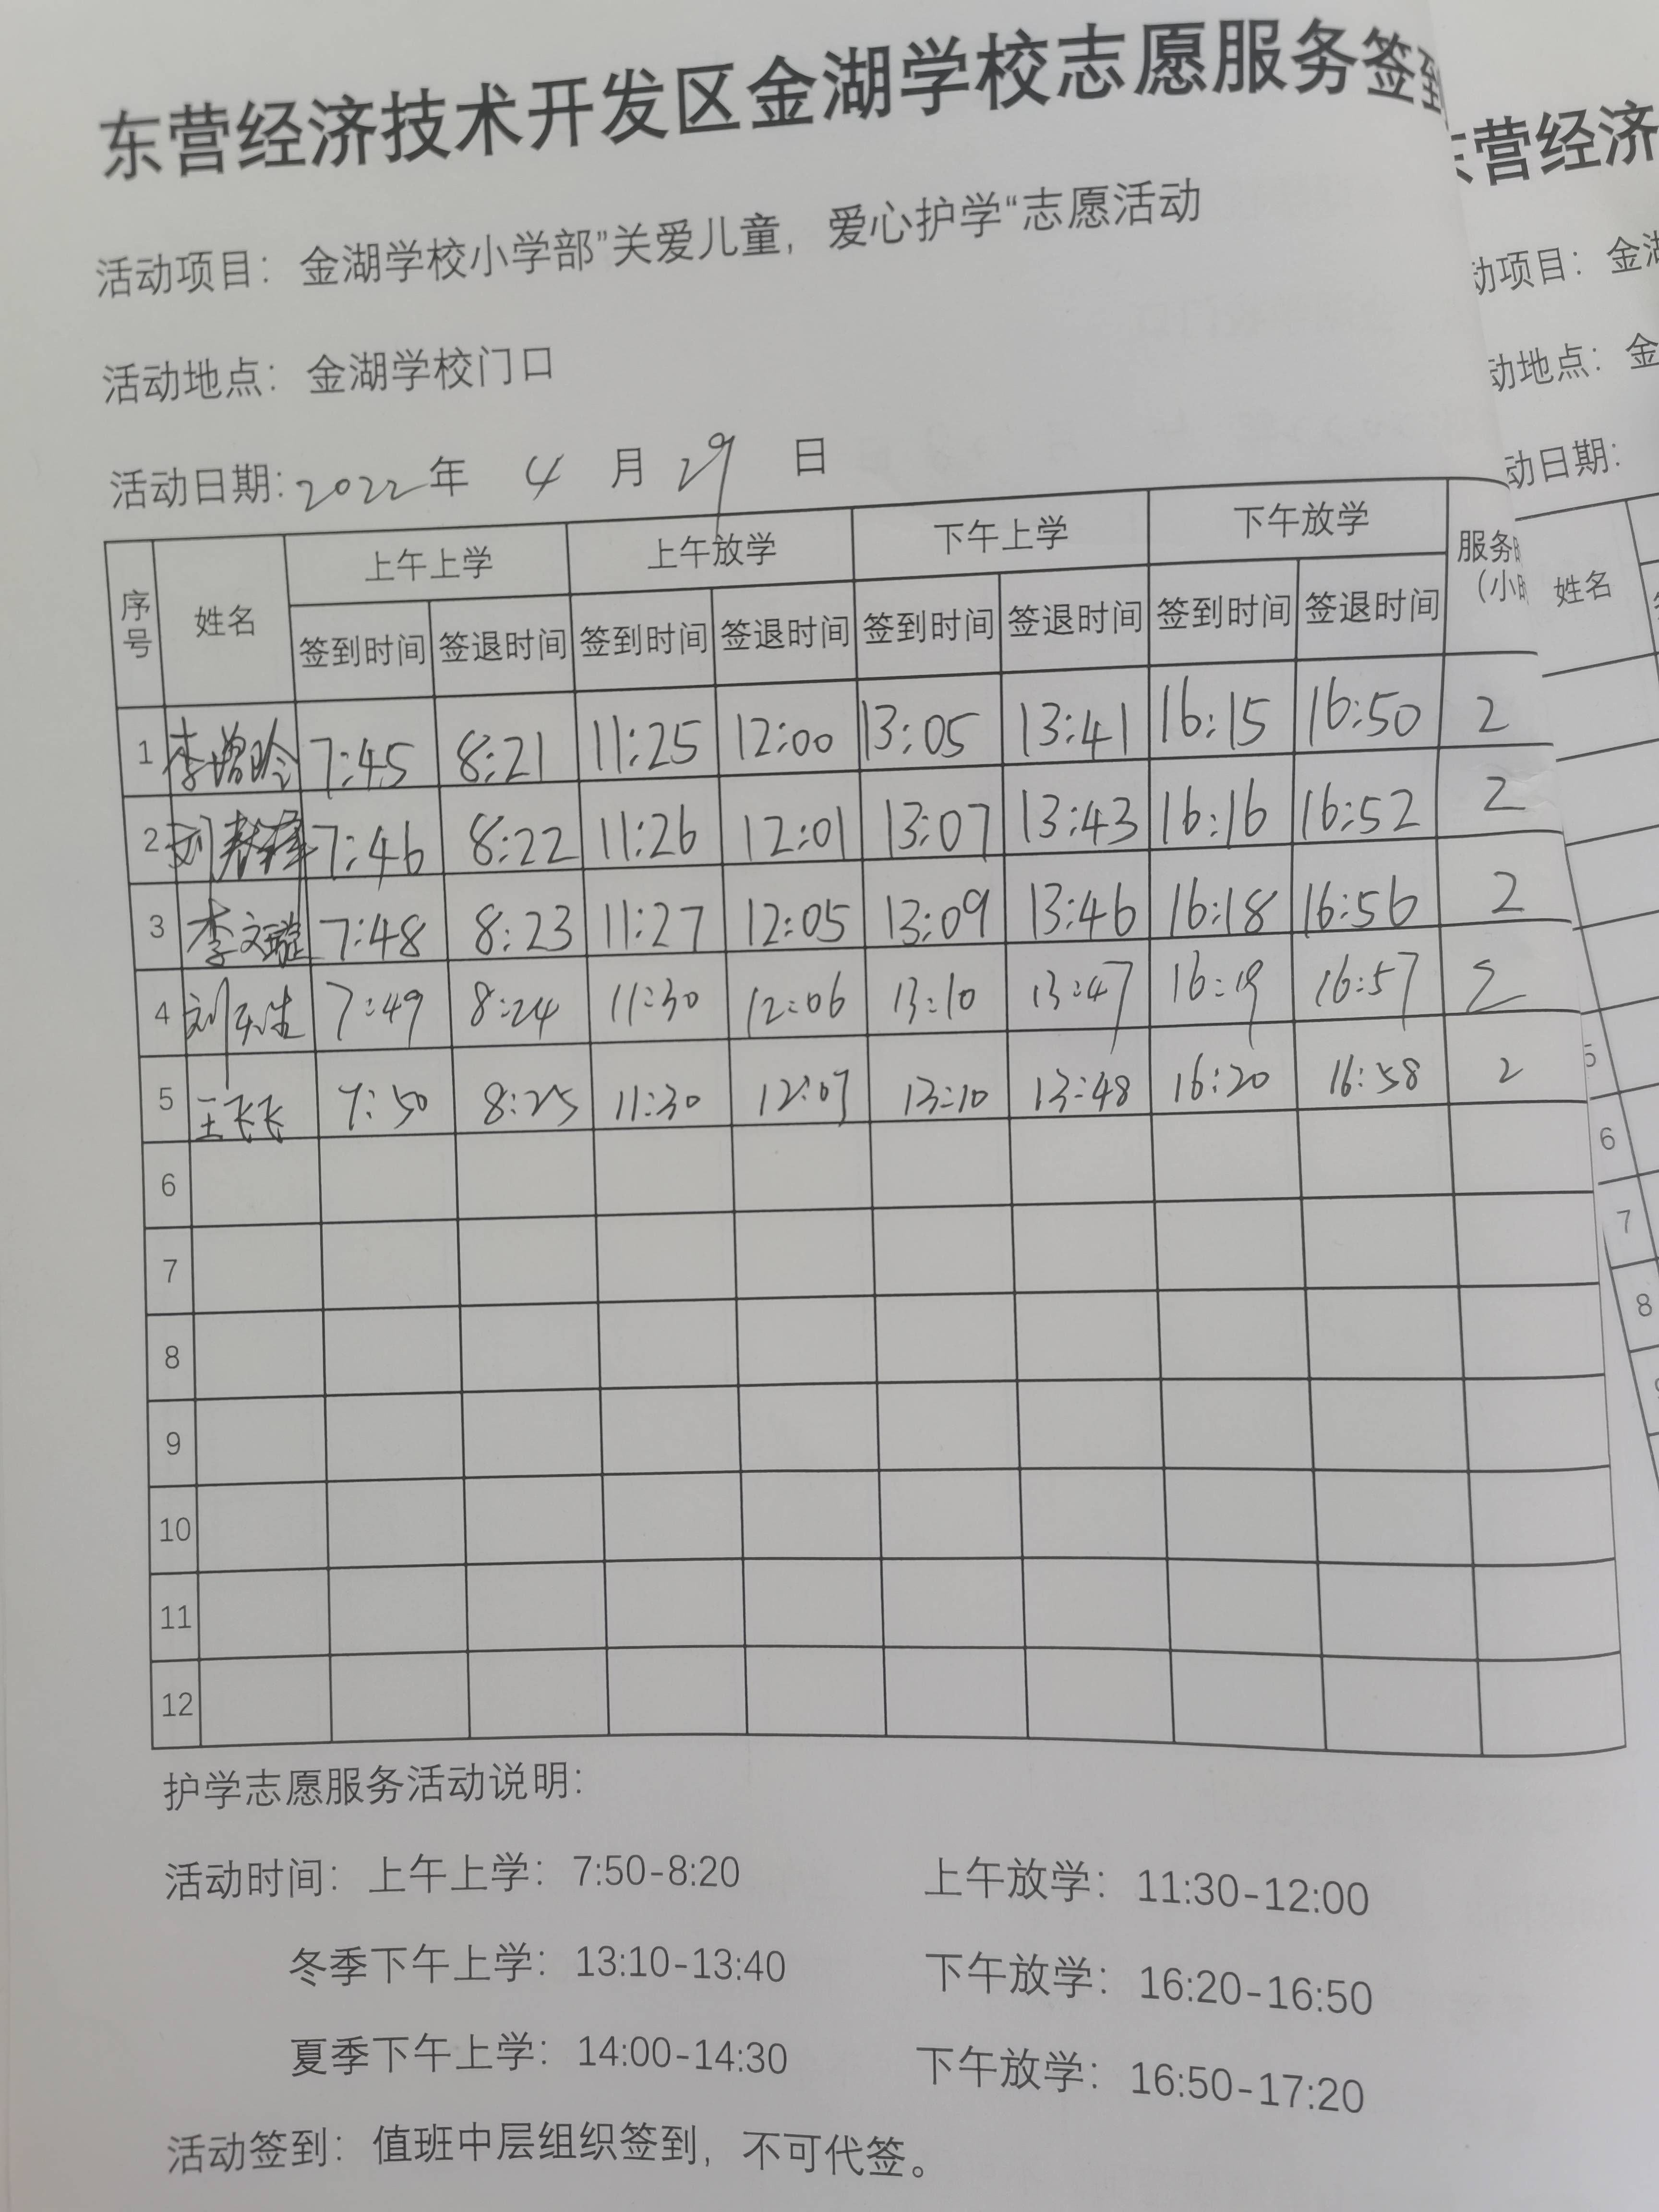 东营经济技术开发区金湖学校志愿服务签
活动项目：金湖学校小学部”关爱儿童，爱心护学“志愿活动
活动地点：金湖学校门口
活动日期：2022年 4 月 29 日
序号 姓名 上午上学 上午放学 下午上学 下午放学 服务 （小
签到时间 签退时间 签到时间 签退时间 签到时间 签退时间 签到时间 签退时间
1 李 7:45 8:21 11:25 12:00 13:05 13:41 16:15 16:50 2
2 刘 7:46 8:22 11:26 12:01 13:07 13:43 16:16 16:52 2
3 李文璇 7:48 8:23 11:27 12:05 13:09 13:46 16:18 16:56 2
4 刘 7:49 8:24 11:30 12:06 13:10 13:47 16:19 16:57 2
5 王飞飞 7:50 8:25 11:30 12:07 13:10 13:48 16:20 16:58 2
6
7
8
9
10
11
12
护学志愿服务活动说明：
活动时间：上午上学：7:50-8:20 上午放学：11:30-12:00
冬季下午上学：13:10-13:40 下午放学：16:20-16:50
夏季下午上学：14:00-14:30 下午放学：16:50-17:20
活动签到：值班中层组织签到，不可代签。
营经济
动项目：金
动地点：金
动日期：
姓名
5
6
7
8